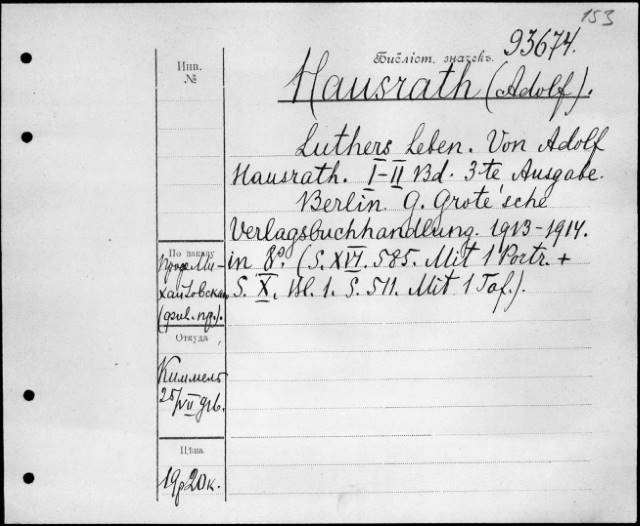 153
93674.
Библіот. значекъ.
Инв.
№
Hausrath (Adolf).
Luthers Leben. Von Adolf
Hausrath. I-II Bd. 3-te Ausgabe.
Berlin. G. Grote'sche
Verlagsbuchhandlung. 1913-1914.
in 8º. (S. XVI. 585. Mit 1 Portr. +
S. X. Bl. 1. S. 511. Mit 1 Taf.).
По заказу
проф. Ми-
хайловскаго
Откуда
Киммель
25/VII
Цѣна
19р20к.